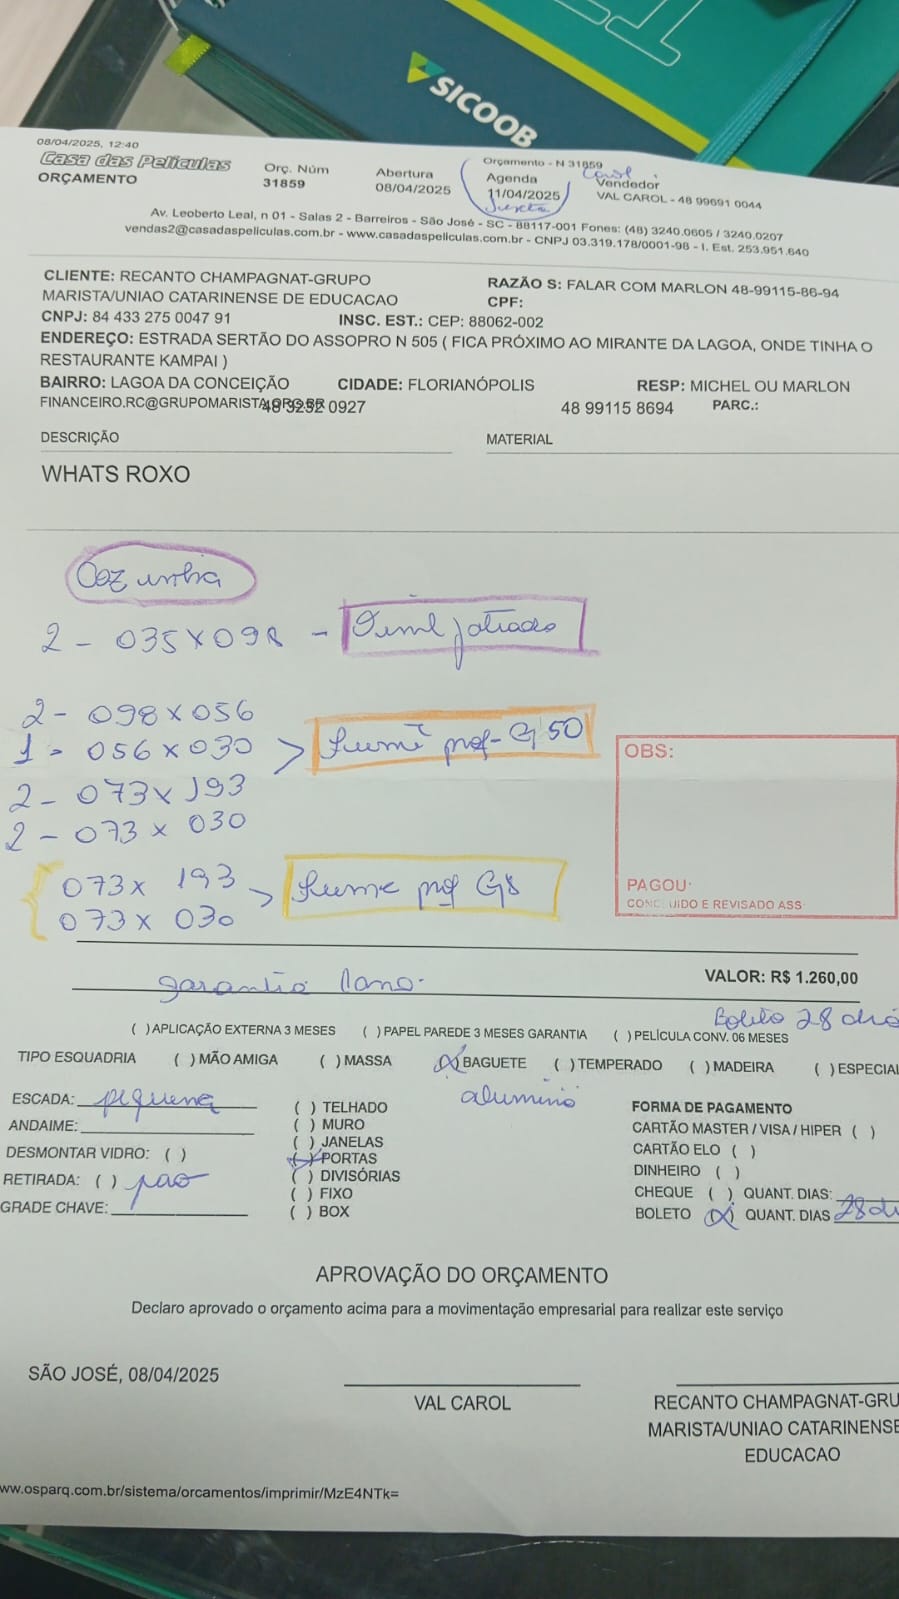 SICOOB
08/04/2025, 12:40
Orçamento - N 31859
Casa das Películas
ORÇAMENTO
Orç. Núm
31859
Abertura
08/04/2025
Agenda
11/04/2025
Sexta
Carol
Vendedor
VAL CAROL - 48 99691 0044
Av. Leoberto Leal, n 01 - Salas 2 - Barreiros - São José - SC - 88117-001 Fones: (48) 3240.0605 / 3240.0207
vendas2@casadaspeliculas.com.br - www.casadaspeliculas.com.br - CNPJ 03.319.178/0001-98 - I. Est. 253.951.640
CLIENTE: RECANTO CHAMPAGNAT-GRUPO
MARISTA/UNIAO CATARINENSE DE EDUCACAO
RAZÃO S: FALAR COM MARLON 48-99115-86-94
CPF:
CNPJ: 84 433 275 0047 91
INSC. EST.: CEP: 88062-002
ENDEREÇO: ESTRADA SERTÃO DO ASSOPRO N 505 ( FICA PRÓXIMO AO MIRANTE DA LAGOA, ONDE TINHA O
RESTAURANTE KAMPAI )
BAIRRO: LAGOA DA CONCEIÇÃO
CIDADE: FLORIANÓPOLIS
RESP: MICHEL OU MARLON
FINANCEIRO.RC@GRUPOMARISTA.ORG.BR
48 3232 0927
48 99115 8694
PARC.:
DESCRIÇÃO
MATERIAL
WHATS ROXO
Cozinha
2 - 035 X 098 - jatiado
2 - 098 X 056
1 - 056 X 030 > Fumê prof - G 50
2 - 073 X 193
2 - 073 X 030
073 X 193 > Fume prof G8
073 X 030
OBS:
PAGOU:
CONCLUIDO E REVISADO ASS
VALOR: R$ 1.260,00
garantia 1 ano.
Boleto 28 dias
( ) APLICAÇÃO EXTERNA 3 MESES ( ) PAPEL PAREDE 3 MESES GARANTIA ( ) PELÍCULA CONV. 06 MESES
TIPO ESQUADRIA ( ) MÃO AMIGA ( ) MASSA (X) BAGUETE ( ) TEMPERADO ( ) MADEIRA ( ) ESPECIAL
aluminio
ESCADA: pequena
ANDAIME:
DESMONTAR VIDRO: ( )
RETIRADA: ( ) não
GRADE CHAVE:
( ) TELHADO
( ) MURO
( ) JANELAS
(X) PORTAS
( ) DIVISÓRIAS
( ) FIXO
( ) BOX
FORMA DE PAGAMENTO
CARTÃO MASTER / VISA / HIPER ( )
CARTÃO ELO ( )
DINHEIRO ( )
CHEQUE ( ) QUANT. DIAS:
BOLETO (X) QUANT. DIAS 28 di
APROVAÇÃO DO ORÇAMENTO
Declaro aprovado o orçamento acima para a movimentação empresarial para realizar este serviço
SÃO JOSÉ, 08/04/2025
VAL CAROL
RECANTO CHAMPAGNAT-GRU
MARISTA/UNIAO CATARINENSE
EDUCACAO
ww.osparq.com.br/sistema/orcamentos/imprimir/MzE4NTk=